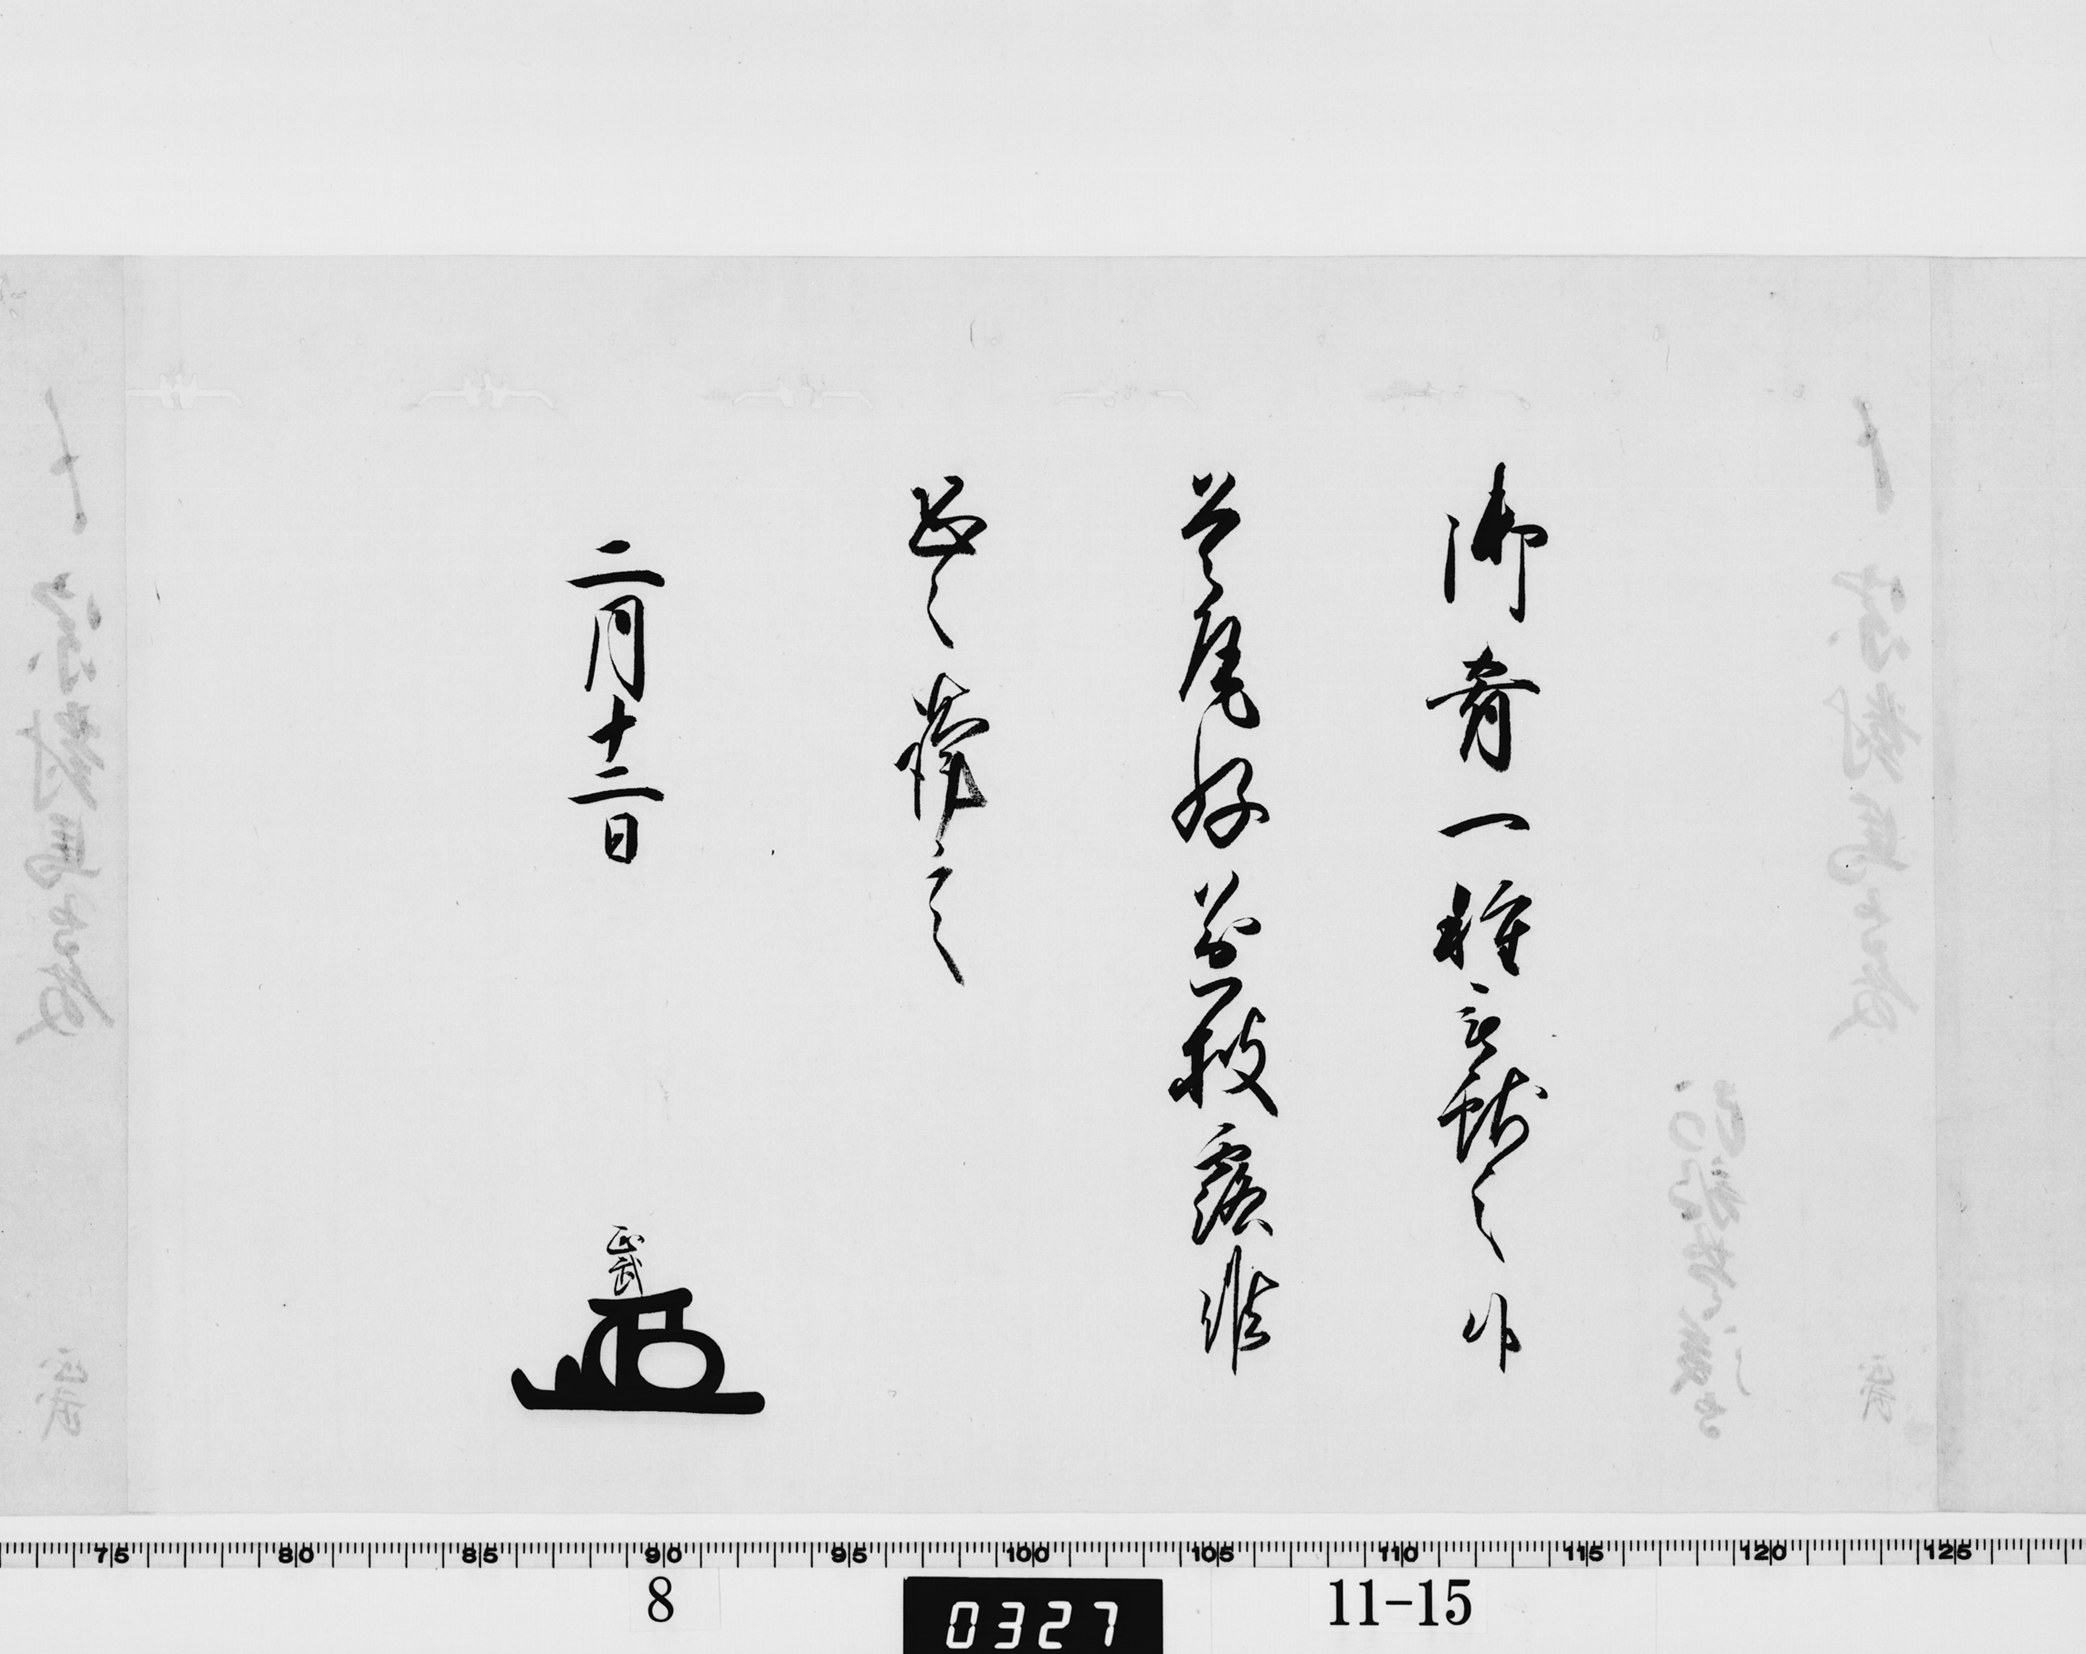 御肴一種被献之候
首尾好遂披露候
恐々謹言
二月十二日
正武
75 80 85 90 95 100 105 110 115 120 125
8
0327
11-15